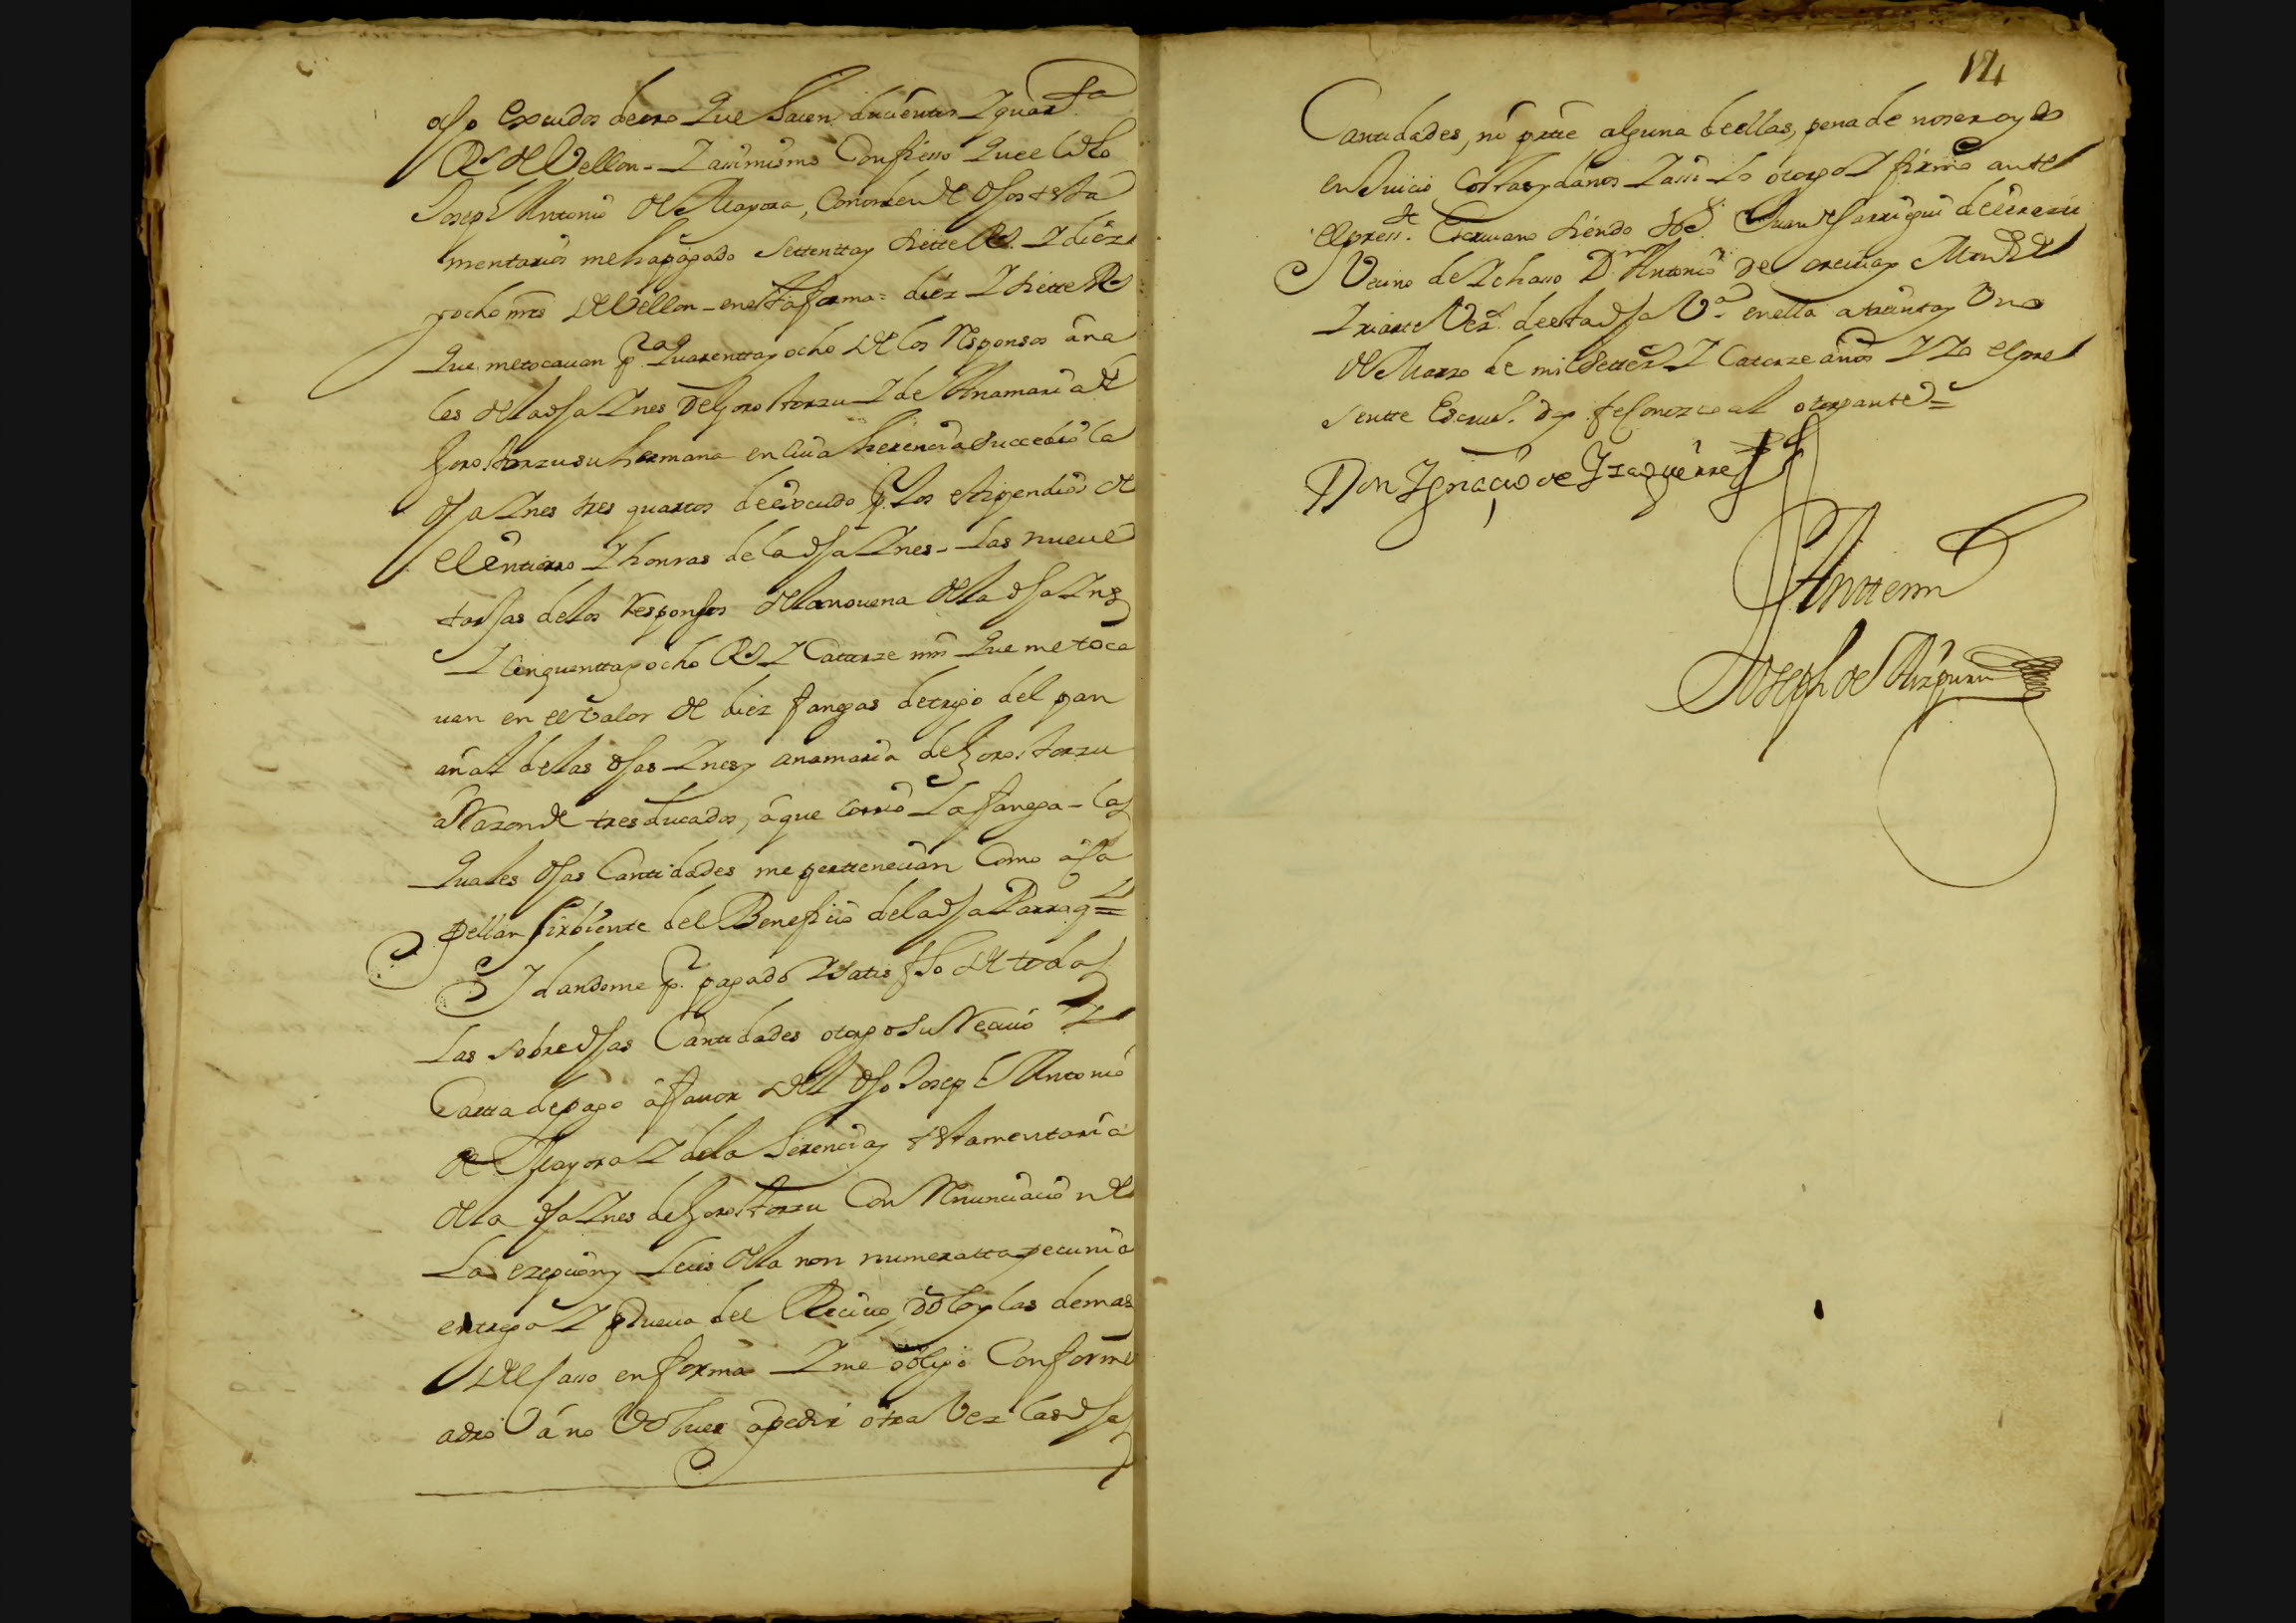 ocho escudos de oro Que hacen ducientos Y quar.ta
Rs de Vellon - Y assimismo Confiesso Que el dho
Joseph Antonio de Mayora, Con orden de dhos testa
mentarios me ha pagado Settenta y siette Rs. Y diez
y ocho mrs de Vellon - en esta forma = diez Y siette Rs
Que me tocauan p.r Quarenta y ocho de los Responsos ana
les de la dha Ynes de Gorostorzu Y de Anamaria de
Gorostorzu su hermana en Cuia herencia succedio la
dha Ynes tres quartos de escudo p.r Los estipendios de
el entierro Y honras de la dha Ynes - Las nueue
tarjas de los responsos de la nouena de la dha Ynes
Y Cinquenta y ocho Rs Y Catorze mrs Que me toca
uan en el Valor de diez fanegas de trigo del pan
añal de las dhas Ynes y anamaria de Gorostorzu
a Razon de tres ducados, a que Corrio La fanega - las
Quales dhas Cantidades me perttenecian Como a Ca
pellan sirbiente del Beneficio de la dha Parroq.l =
Y dandome p.r pagado Y satisfho de todas
Las sobredhas Cantidades otorgo su Reciuo Y
Carta de pago a fauor del dho Joseph Antonio
de Mayora Y de la herencia y testamentaria
de la dha Ynes de Gorostorzu Con Renunciacion de
La ezepcion y Leies de la non numeratta pecunia
entrega Y prueua del Reciuo, dolo y las demas
del casso en forma Y me obligo Conforme
a dro a no Voluer a pedir otra Vez las dhas
14
Cantidades, ni parte alguna de ellas, pena de no ser oydo
en Juicio Costas y daños Y assi Lo otorgo Y firmo ante
el press.te Escriuano siendo tt.os Juan de
Vecino de Ychasso D.n Antonio de y
Yriarte Vez.s de esta dha V.a en ella a treinta y Uno
de Marzo de mil Settez.s Y Catorze años Y Yo el pre
sentte Escriu.o doy fe Conozco al otorgante =
Don Ygnacio de Yzaguirre
Antte mi
Joseph de Aizpuru